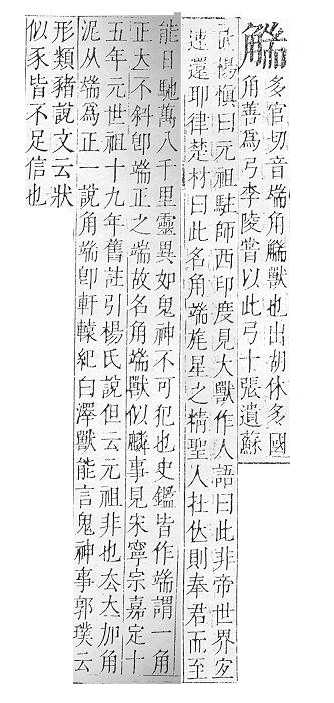 䚲
多官切音端角䚲獸也出胡休多國
角善爲弓李陵嘗以此弓十張遺蘇
武楊慎曰元祖駐師西印度見大獸作人語曰此非帝世界宐
速還耶律楚材曰此名角端旄星之精聖人在位則奉君而至
能日馳萬八千里靈異如鬼神不可犯也史鑑皆作端謂一角
正大不斜卽端正之端故名角端獸似麟事見宋寧宗嘉定十
五年元世祖十九年舊註引楊氏說但云元祖非也大加角
泥从端爲正一說角端卽軒轅紀白澤獸能言鬼神事郭璞云
形類豬說文云狀
似豕皆不足信也